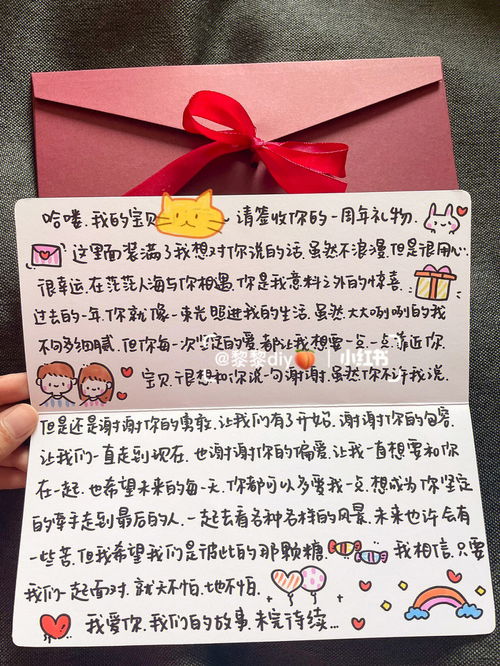 哈喽.我的宝贝~请签收你的一周年礼物.
这里面装满了我想对你说的话.虽然不浪漫.但是很用心.
很幸运.在茫茫人海与你相遇.你是我意料之外的惊喜.
过去的一年.你就像一束光照进我的生活.虽然大大咧咧的我
不向多细腻.但你每一次坚定的爱.都让我想要一点一点靠近你.
@黎黎diy🍑 小红书
宝贝.很想和你说一句谢谢.虽然你不许我说.
但是还是谢谢你的勇敢.让我们有了开始.谢谢你的包容.
让我们一直走到现在.也谢谢你的偏爱.让我一直想要和你
在一起.也希望未来的每一天.你都可以多爱我一点.想成为你坚定
的牵手走到最后的人.一起去看各种各样的风景.未来也许会有
一些苦.但我希望我们是彼此的那颗糖.我相信.只要
我们一起面对.就天不怕.地不怕.
我爱你.我们的故事.未完待续...